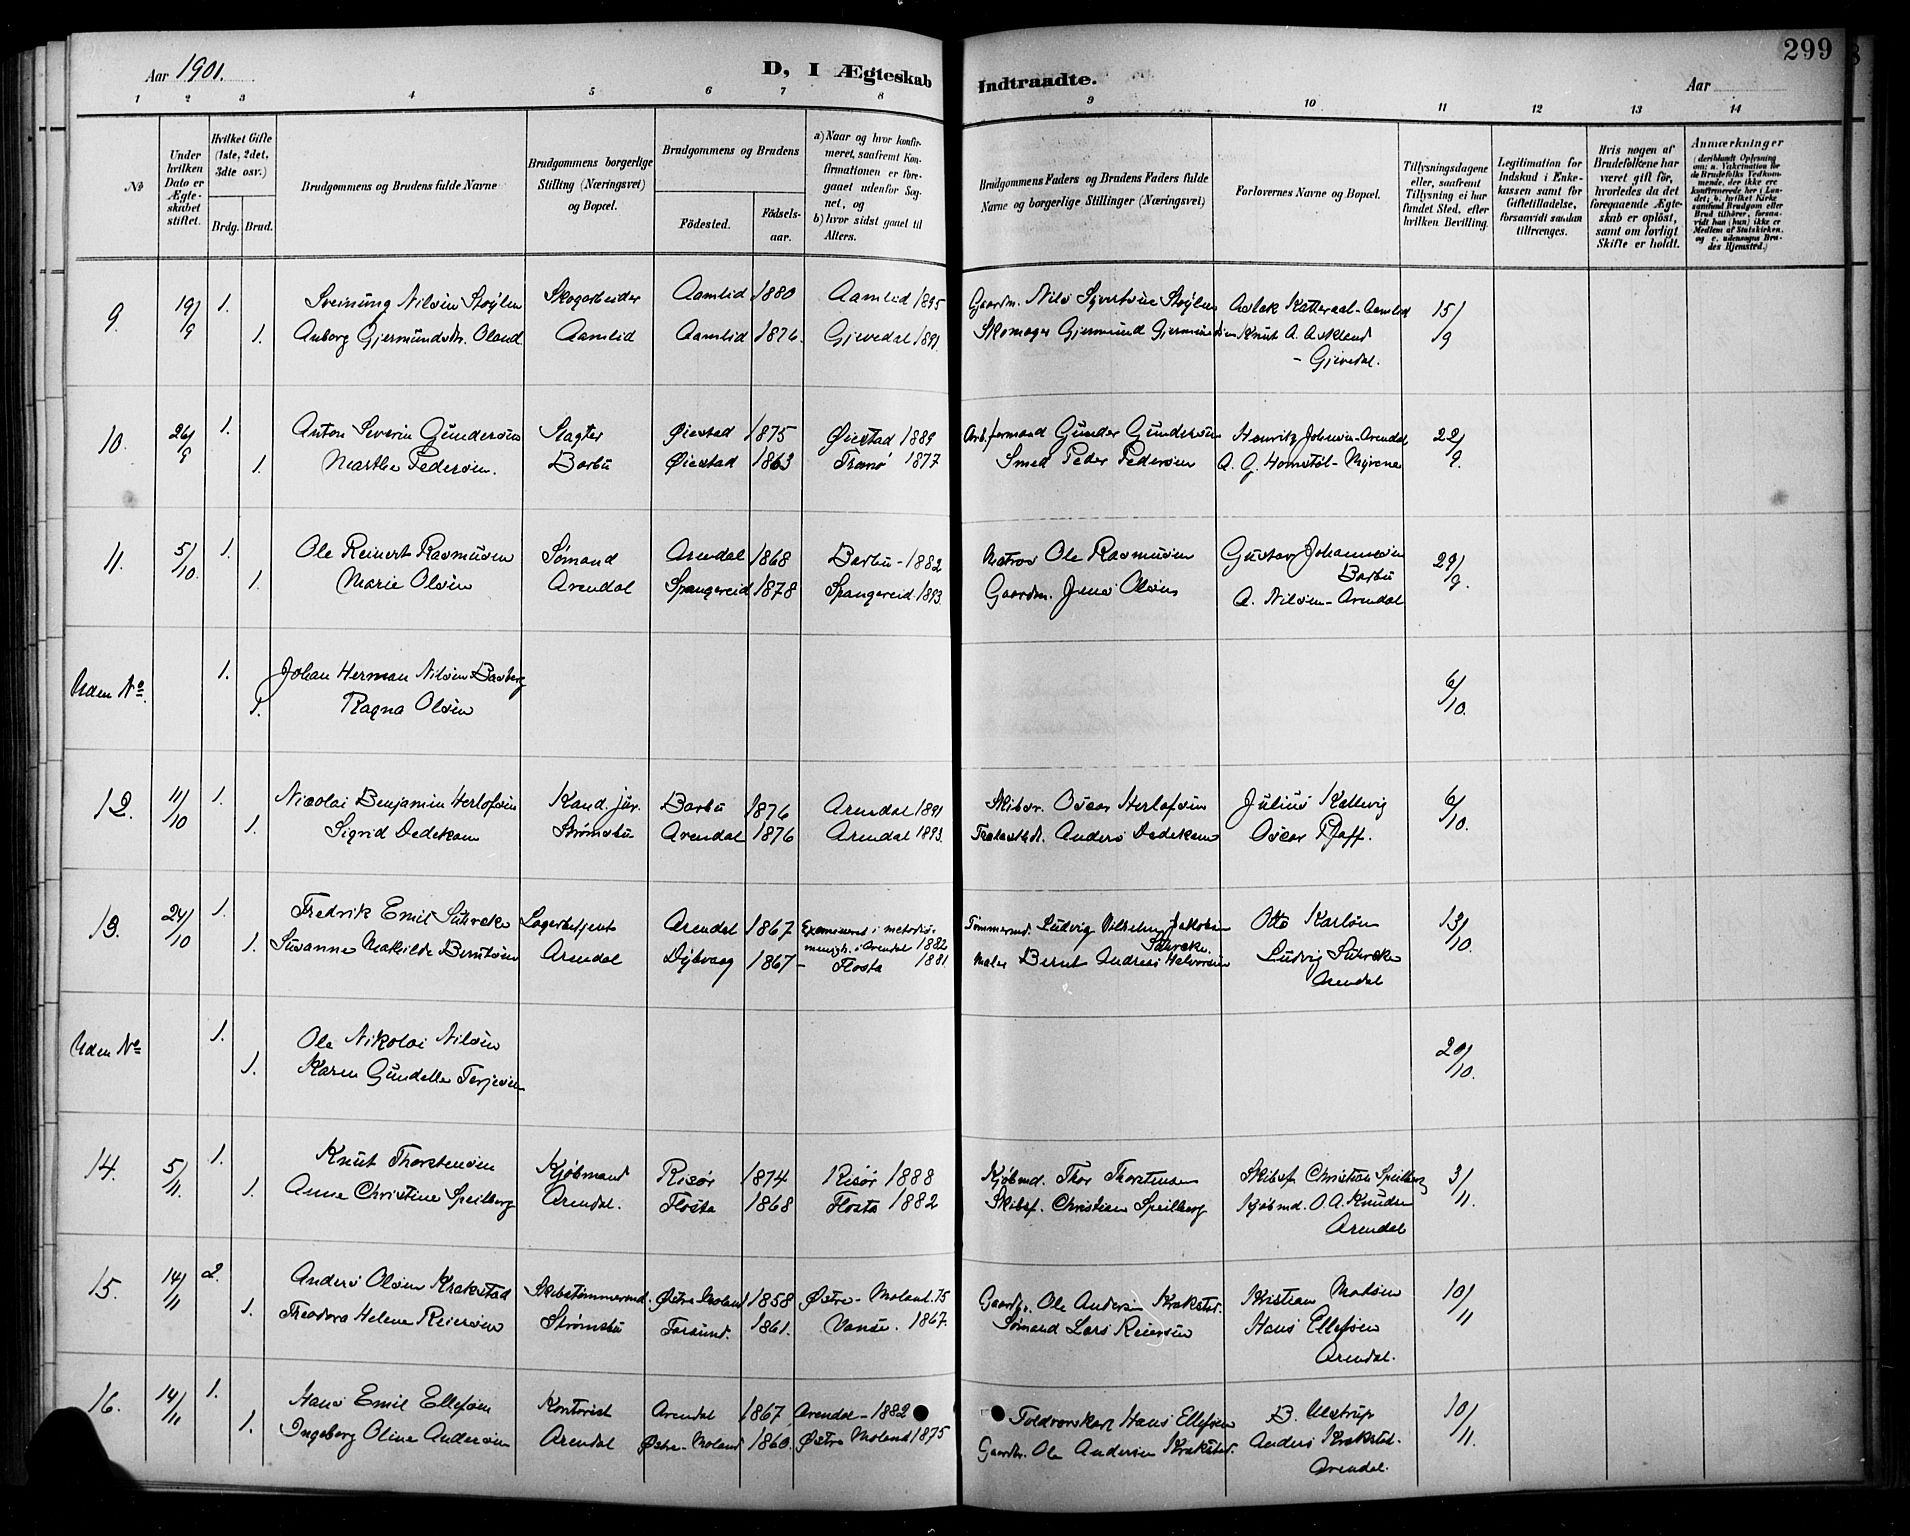 Aar 1901.
D, I Ægteskab
Indtraadte.
Aar
299
1 2 3 4 5 6 7 8 9 10 11 12 13 14
No
Under hvilken Dato er Ægteskabet stiftet.
Hvilket Gifte (1ste, 2det, 3die osv.)
Brdg. Brud.
Brudgommens og Brudens fulde Navne
Brudgommens borgerlige Stilling (Næringsvei) og Bopæl.
Brudgommens og Brudens
Födested.
Födselsaar.
a) Naar og hvor konfirmeret, saafremt Konfirmationen er foregaaet udenfor Sognet, og
b) hvor sidst gaaet til Alters.
Brudgommens Faders og Brudens Faders fulde Navne og borgerlige Stillinger (Næringsvei)
Forlovernes Navne og Bopæl.
Tillysningsdagene eller, saafremt Tillysning ei har fundet Sted, efter hvilken Bevilling.
Legitimation for Indskud i Enkekassen samt for Giftetilladelse, forsaavidt saadan tiltrænges.
Hvis nogen af Brudefolkene har været gift för, hvorledes da det foregaaende Ægteskab er oplöst, samt om lovligt Skifte er holdt.
Anmærkninger
(deriblandt Oplysning om: a. Vakcination for de Brudefolks Vedkommende, der ikke ere konfirmerede her i Landet; b. hvilket Kirkesamfund Brudgom eller Brud tilhörer, forsaavidt han (hun) ikke er Medlem af Statskirken, og c. udensogns Brudes Hjemsted.)
9. 19/9 1. Sveinung Nilsen Støylen Skogarbeider Aamlid 1880 Aamlid 1895 Gaardm. Nils Syvertsen Støylen Aslak Katteraal-Aamlid 15/9
1. Anborg Gjermundsdtr. Oland Aamlid Aamlid 1876. Gjevedal 1891. Skomager Gjermund Gjermundsen Knut A. Askland
- Gjevedal.
10. 26/9 1. Anton Severin Gundersen Slagter Øiestad 1875 Øiestad 1889 Arb.formand Gunder Gundersen Henrik Johnsen-Arendal 22/9.
1. Marthe Pedersen. Barbu Øiestad 1863 Tromø 1877 Smed Peder Pedersen A. G. Homstøl - Myrene
11. 5/10. 1. Ole Reinert Rasmusen Sømand Arendal 1868 Barbu - 1882 Matros Ole Rasmusen Gustav Johannesen 29/9.
Barbu
1. Marie Olsen Arendal Spangereid 1878 Spangereid. 1893. Gaardm. Jens Olsen A. Nilsen - Arendal
Uden No. 1. Johan Herman Nilsen Basberg 6/10.
1. Ragna Olsen
12. 11/10 1. Nicolai Benjamin Herlofsen Kand. jur. Barbu 1876 Arendal 1891 Skibsr. Oscar Herlofsen Julius Kallevig 6/10.
1. Sigrid Dedekam Strømsbu Arendal 1876 Arendal 1893. Anders Dedekam Oscar Pfaff.
13. 24/10 1. Fredrik Emil Suhrcke Lagerbetjent Arendal 1867 Examineret i metodistmenigh. i Arendal 1882 Tømmermd. Ludvig Vilhelm Jakobsen Otto Karlsen 13/10
Suhrcke.
1. Susanne Mathilde Berntsen Arendal Dybvaag 1867 - Flosta 1881. Maler Bernt Andreas Halvorsen Ludvig Suhrcke
Arendal
Uden No 1. Ole Nikolai Nilsen 20/10.
1. Karen Gundelle Terjesen
14. 5/11. 1. Knut Thorstensen Kjøbmand Risør 1874 Risør 1888 Kjøbmd. Thor Thorstensen Skibsf. Christian Speilberg 3/11.
1. Anne Christine Speilberg Arendal. Flosta 1868 Flosta 1882 Skibsf. Christian Speilberg Kjøbmd. O. A. Knudsen
Arendal
15. 14/11 2. Anders Olsen Krakstad Skibstømmermd. Østre Moland 1858 Østre-Moland. 75 Gaardbr. Ole Andersen Krakstad. Kristian Madsen 10/11
1. Theodora Helene Reiersen Strømsbu Farsund. 1861. Vanse. 1867. Sømand Lars Reiersen Hans Ellefsen
Arendal.
16. 14/11 1. Hans Emil Ellefsen Kontorist Arendal 1867 Arendal - 1882 Toldvørskarl Hans Ellefsen B. Ulstrup 10/11.
1. Ingeborg Oline Andersen Arendal Østre-Moland 1860. Østre Moland 1875 Gaardbr. Ole Andersen Krakstad. Anders Krakstad.
Arendal.